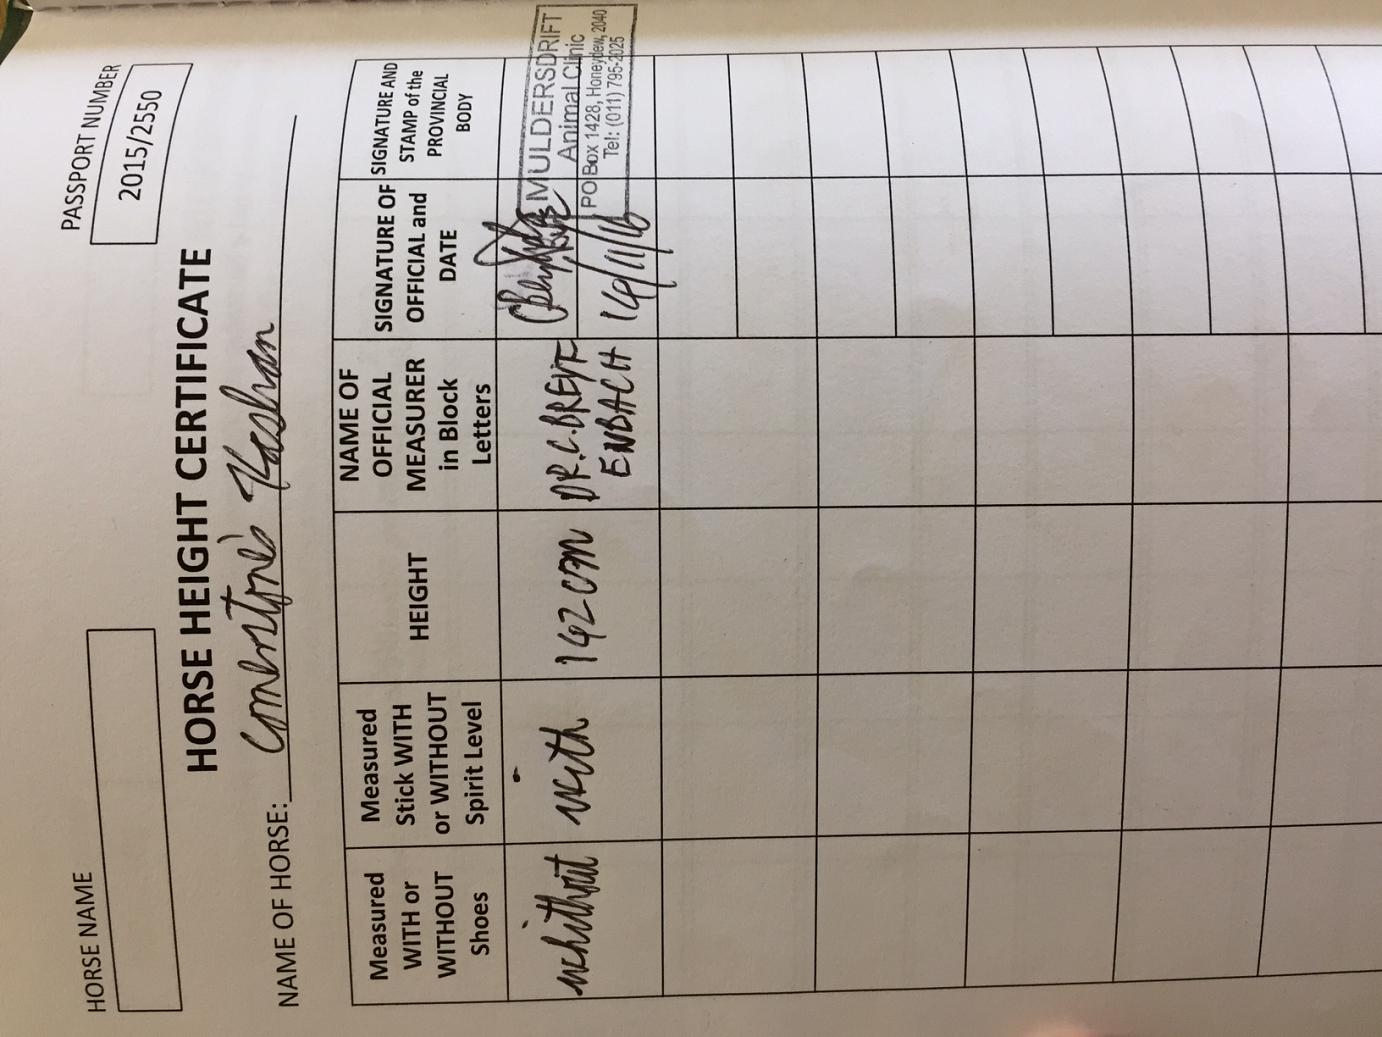 HORSE NAME
PASSPORT NUMBER
2015/2550
HORSE HEIGHT CERTIFICATE
NAME OF HORSE: Kashan
Measured WITH or WITHOUT Shoes
Measured Stick WITH or WITHOUT Spirit Level
HEIGHT
NAME OF OFFICIAL MEASURER in Block Letters
SIGNATURE OF OFFICIAL and DATE
SIGNATURE AND STAMP of the PROVINCIAL BODY
without
with
142 cm
DR. C. BREYT
ENBACH
14/11/16
MULDERSDRIFT
Animal Clinic
PO Box 1428, Honeydew, 2040
Tel: (011) 795-2025